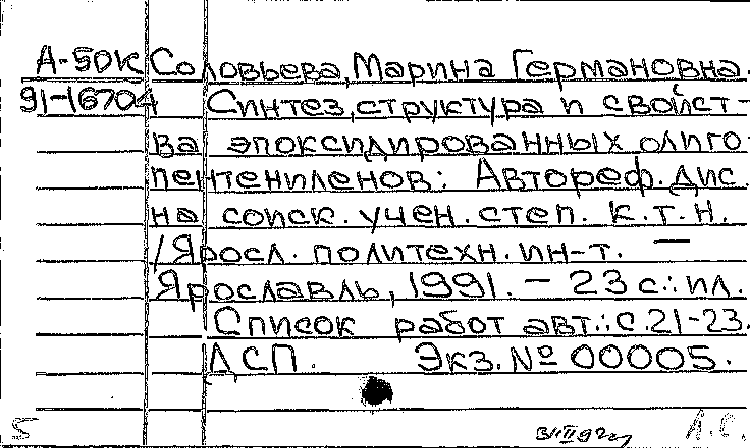 А-50К Соловьева, Марина Германовна.
91-16704 Синтез, структура и свойст-
ва эпоксидированных олиго-
пентениленов: Автореф. дис.
на соиск. учен. степ. к.т.н.
/Яросл. политехн. ин-т. —
Ярославль, 1991. – 23 с.: ил.
Список работ авт.: с. 21-23.
ДСП. Экз. № 00005.
5